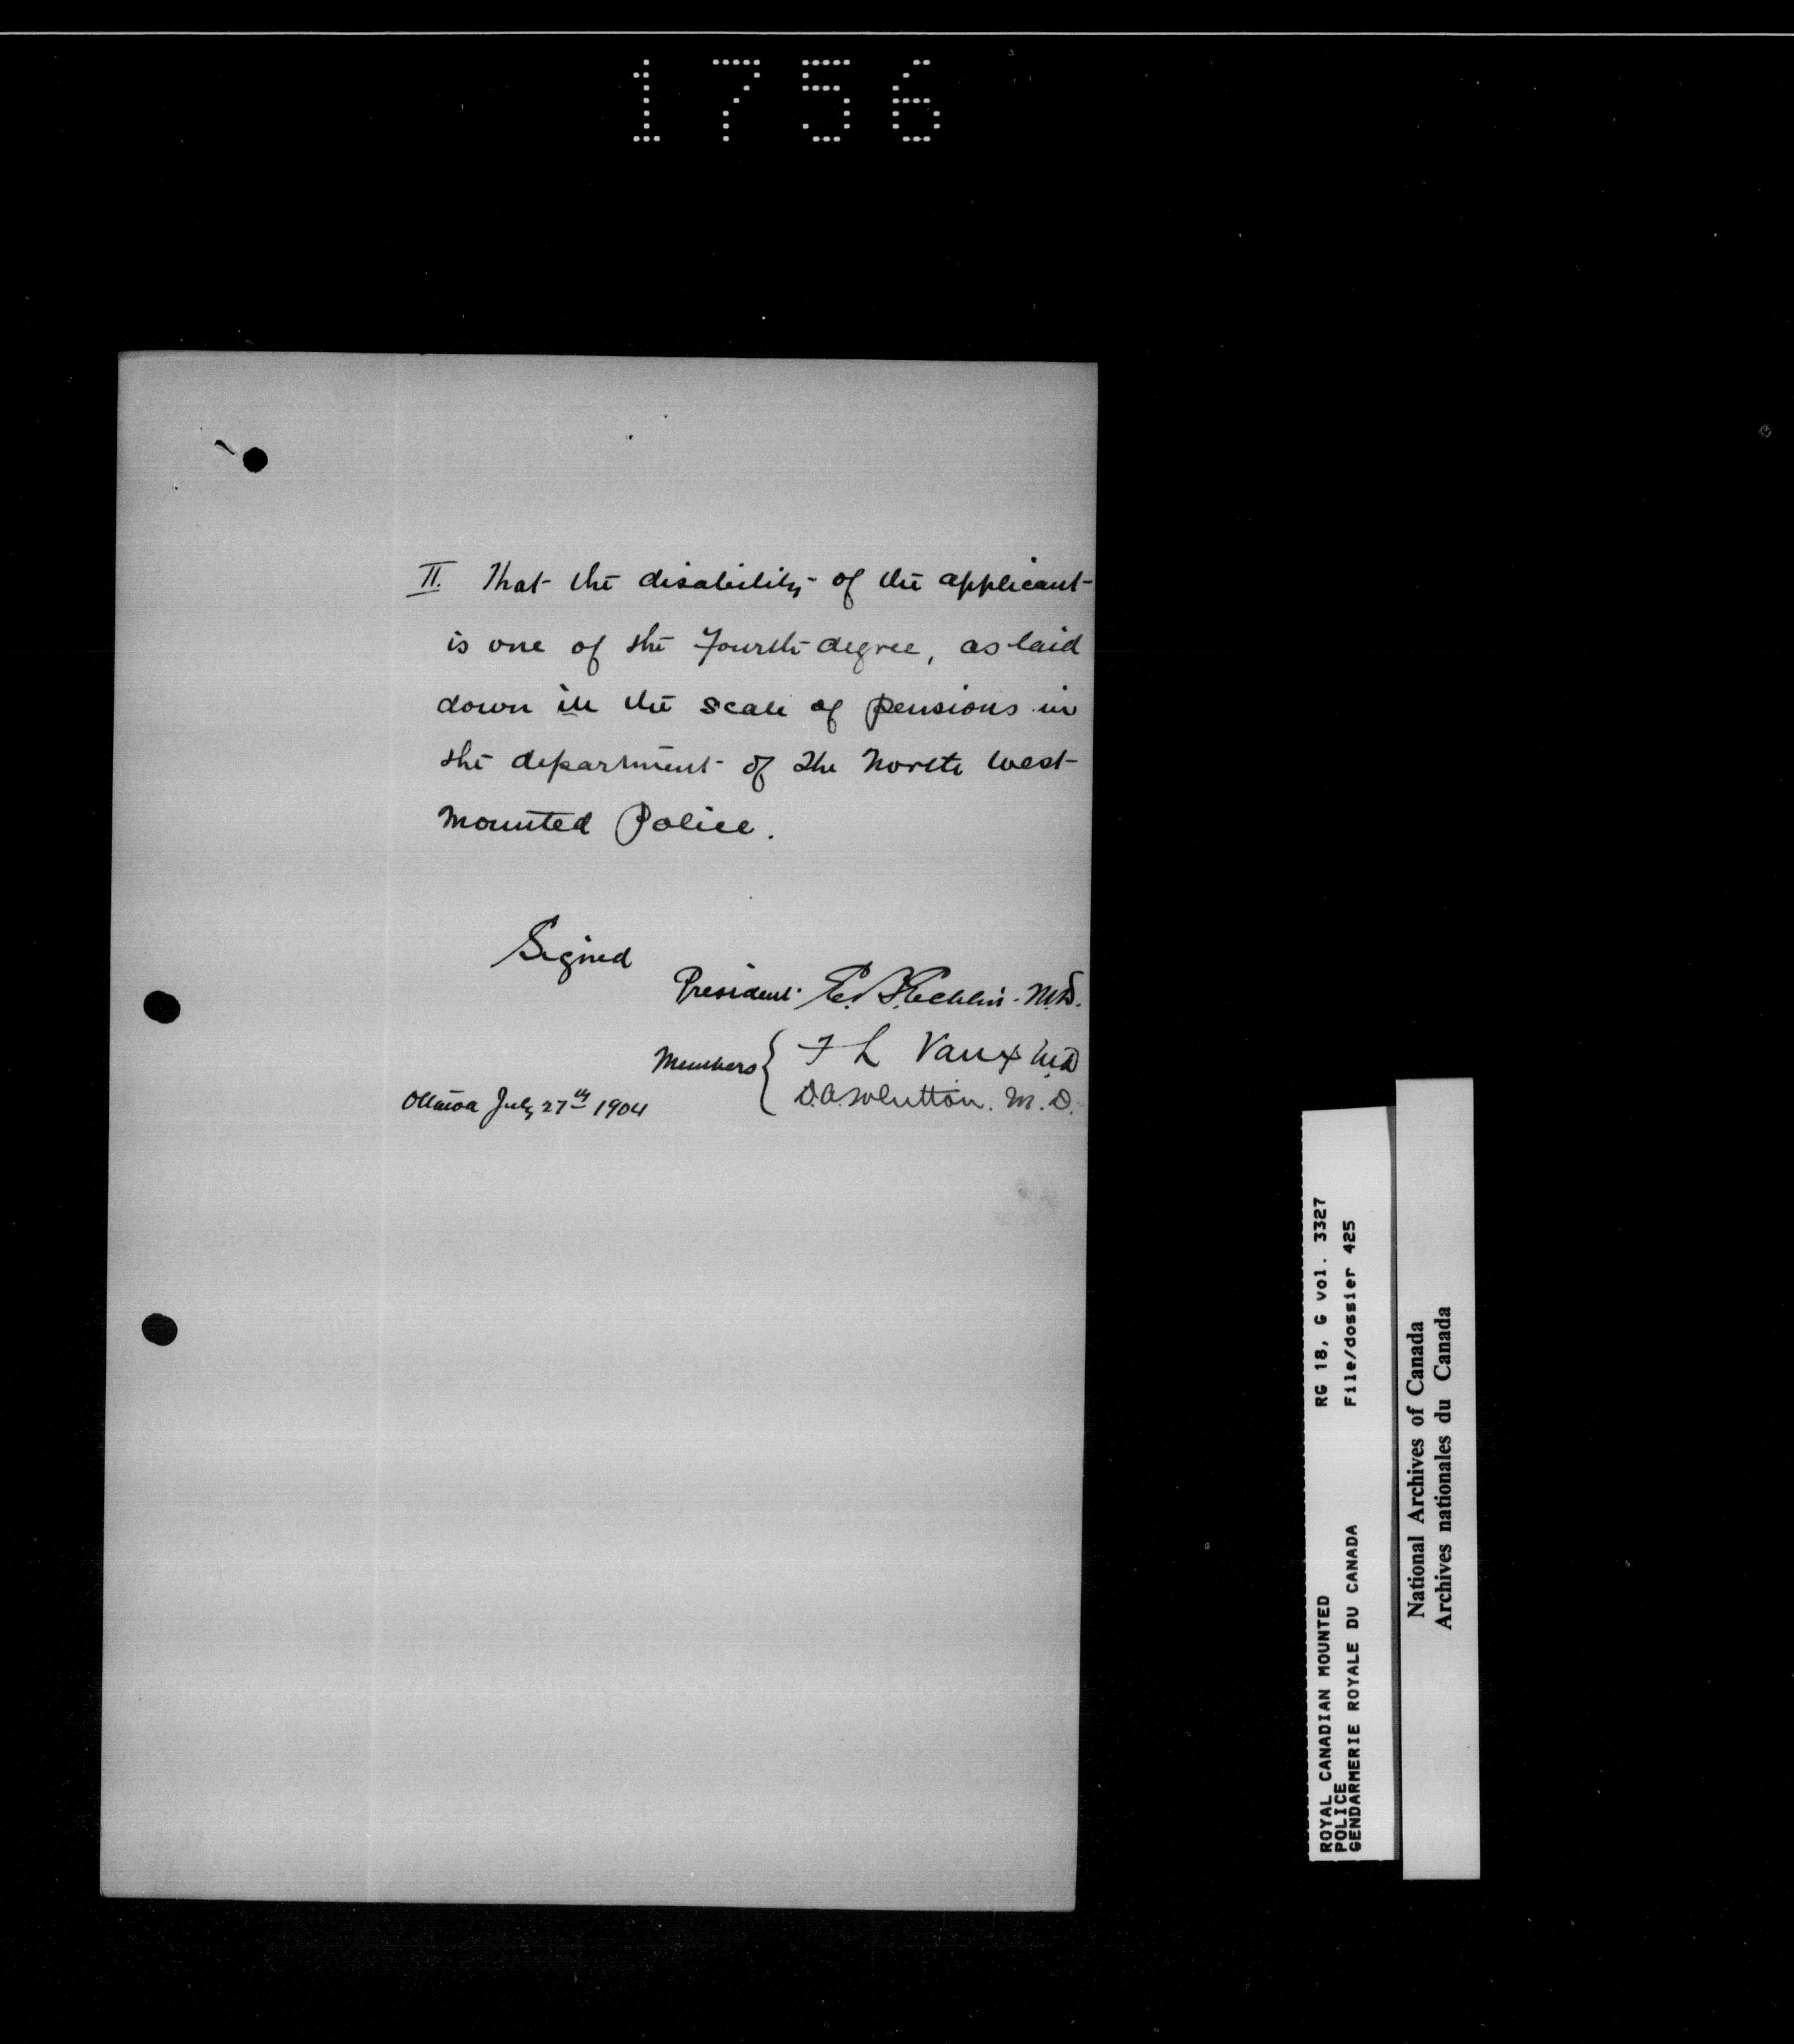 1756
II. That the disability of the applicant
is one of the Fourth degree, as laid
down in the scale of pensions in
the department of the North West
Mounted Police.
Signed
President. E. B. Echlin. M.D.
Members { F L Vaux M.D
D. A. Whitton. M. D.
Ottawa July 27th 1904
RG 18, G vol. 3327
File/dossier 425
ROYAL CANADIAN MOUNTED
POLICE
GENDARMERIE ROYALE DU CANADA
National Archives of Canada
Archives nationales du Canada